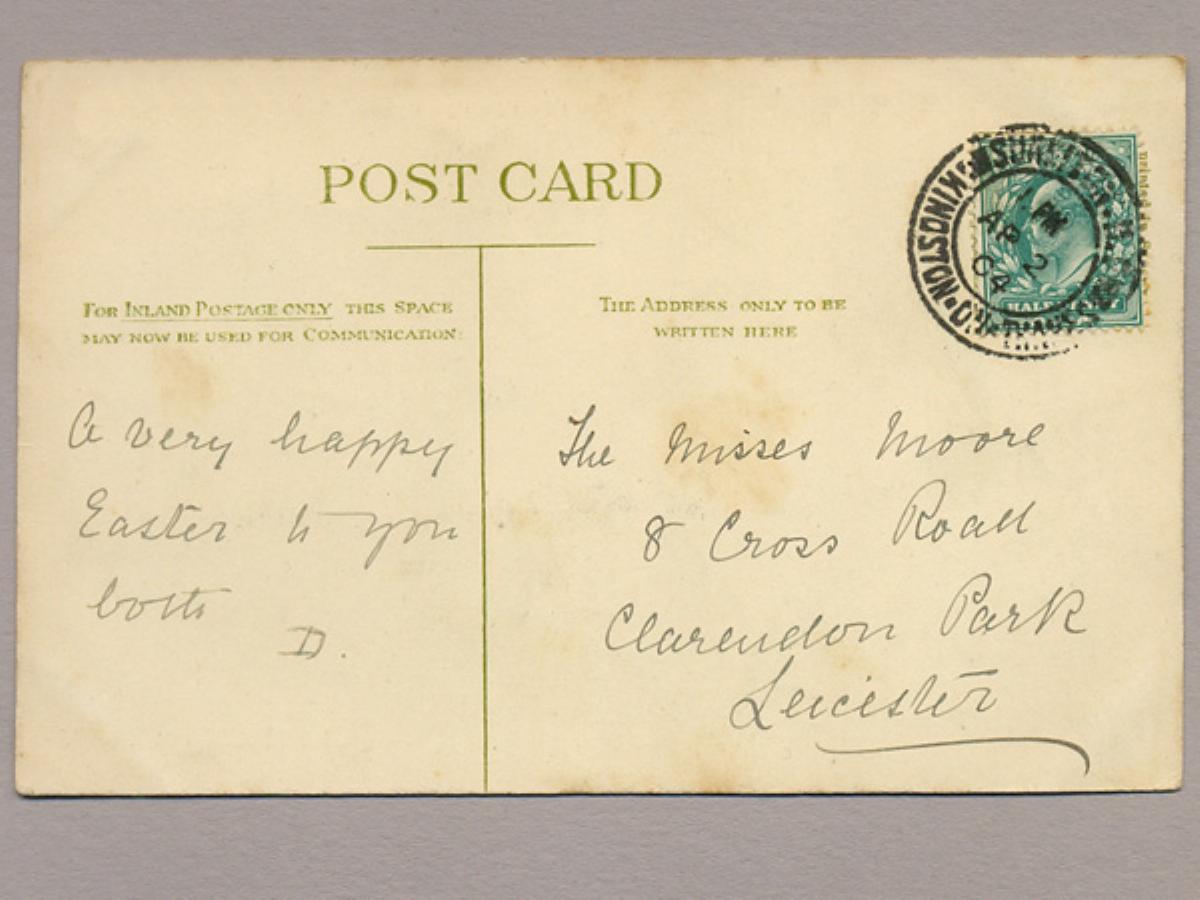 POST CARD
FOR INLAND POSTAGE ONLY THIS SPACE
MAY NOW BE USED FOR COMMUNICATION:
THE ADDRESS ONLY TO BE
WRITTEN HERE
KINGSTON
PM
AP 2
04
HALF
A very happy
Easter to you
both
D.
The Misses Moore
8 Cross Road
Clarendon Park
Leicester